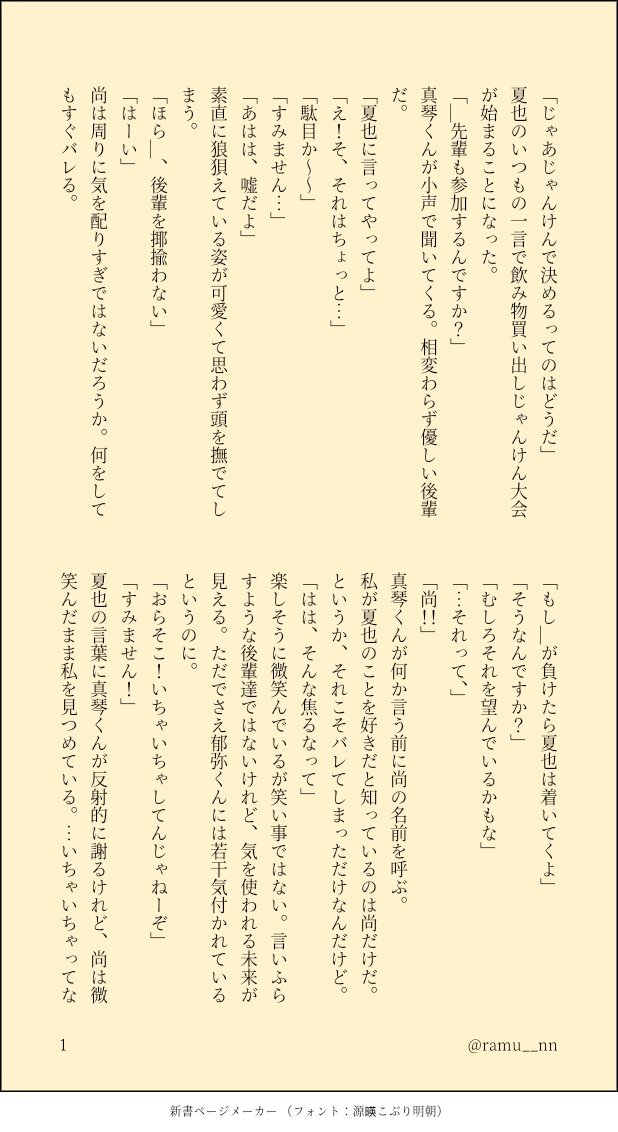 「じゃあじゃんけんで決めるってのはどうだ」
夏也のいつもの一言で飲み物買い出しじゃんけん大会
が始まることになった。
「__先輩も参加するんですか?」
真琴くんが小声で聞いてくる。相変わらず優しい後輩
だ。
「夏也に言ってやってよ」
「え!そ、それはちょっと…」
「駄目か〜〜」
「すみません…」
「あはは、嘘だよ」
素直に狼狽えている姿が可愛くて思わず頭を撫でてし
まう。
「ほら__、後輩を揶揄わない」
「はーい」
尚は周りに気を配りすぎではないだろうか。何をして
もすぐバレる。
「もし__が負けたら夏也は着いてくよ」
「そうなんですか?」
「むしろそれを望んでいるかもな」
「…それって、」
「尚!!」
真琴くんが何か言う前に尚の名前を呼ぶ。
私が夏也のことを好きだと知っているのは尚だけだ。
というか、それこそバレてしまっただけなんだけど。
「はは、そんな焦るなって」
楽しそうに微笑んでいるが笑い事ではない。言いふら
すような後輩達ではないけれど、気を使われる未来が
見える。ただでさえ郁弥くんには若干気付かれている
というのに。
「おらそこ!いちゃいちゃしてんじゃねーぞ」
「すみません!」
夏也の言葉に真琴くんが反射的に謝るけれど、尚は微
笑んだまま私を見つめている。…いちゃいちゃってな
1
@ramu__nn
新書ページメーカー（フォント：源暎こぶり明朝）